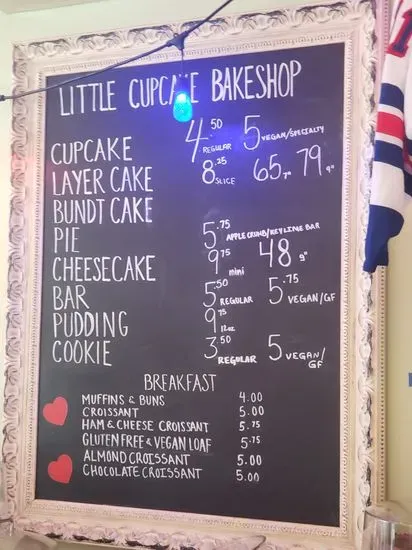 LITTLE CUPCAKE BAKESHOP
CUPCAKE 4.50 REGULAR 5 VEGAN/SPECIALTY
LAYER CAKE 8.25 SLICE 65 7" 79 9"
BUNDT CAKE
PIE 5.75 APPLE CRUMB/KEY LIME BAR
CHEESECAKE 9.75 mini 48 9"
BAR 5.50 REGULAR 5.75 VEGAN/GF
PUDDING 9.75 12oz
COOKIE 3.50 REGULAR 5 VEGAN/GF
BREAKFAST
MUFFINS & BUNS 4.00
CROISSANT 5.00
HAM & CHEESE CROISSANT 5.75
GLUTEN FREE & VEGAN LOAF 5.75
ALMOND CROISSANT 5.00
CHOCOLATE CROISSANT 5.00